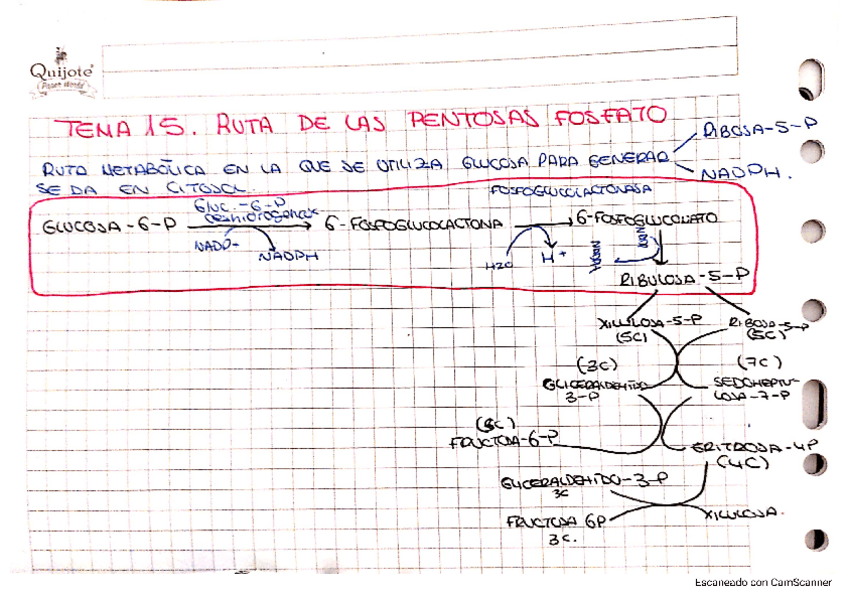 Quijote
Paper World
TEMA 15. RUTA DE LAS PENTOSAS FOSFATO
RUTA METABÓLICA EN LA QUE SE UTILIZA GLUCOSA PARA GENERAR
RIBOSA-5-P
NADPH.
SE DA EN CITOSOL.
GLUCOSA-6-P
Gluc.-6-P
deshidrogenasa
NADP-
NADPH
6-FOSFOGLUCOLACTONA
FOSFOGLUCOLACTONASA
H2O
H+
6-FOSFOGLUCONATO
NADPH
RIBULOSA-5-P
XILULOSA-5-P
(5C)
RIBOSA-5-P
(5C)
(3C)
GLICERALDEHIDO
3-P
(7C)
SEDOHEPTU-
LOSA-7-P
(6C)
FRUCTOSA-6-P
ERITROSA-4P
(4C)
GLICERALDEHIDO-3-P
3C
FRUCTOSA 6P
3C.
XILULOSA.
Escaneado con CamScanner